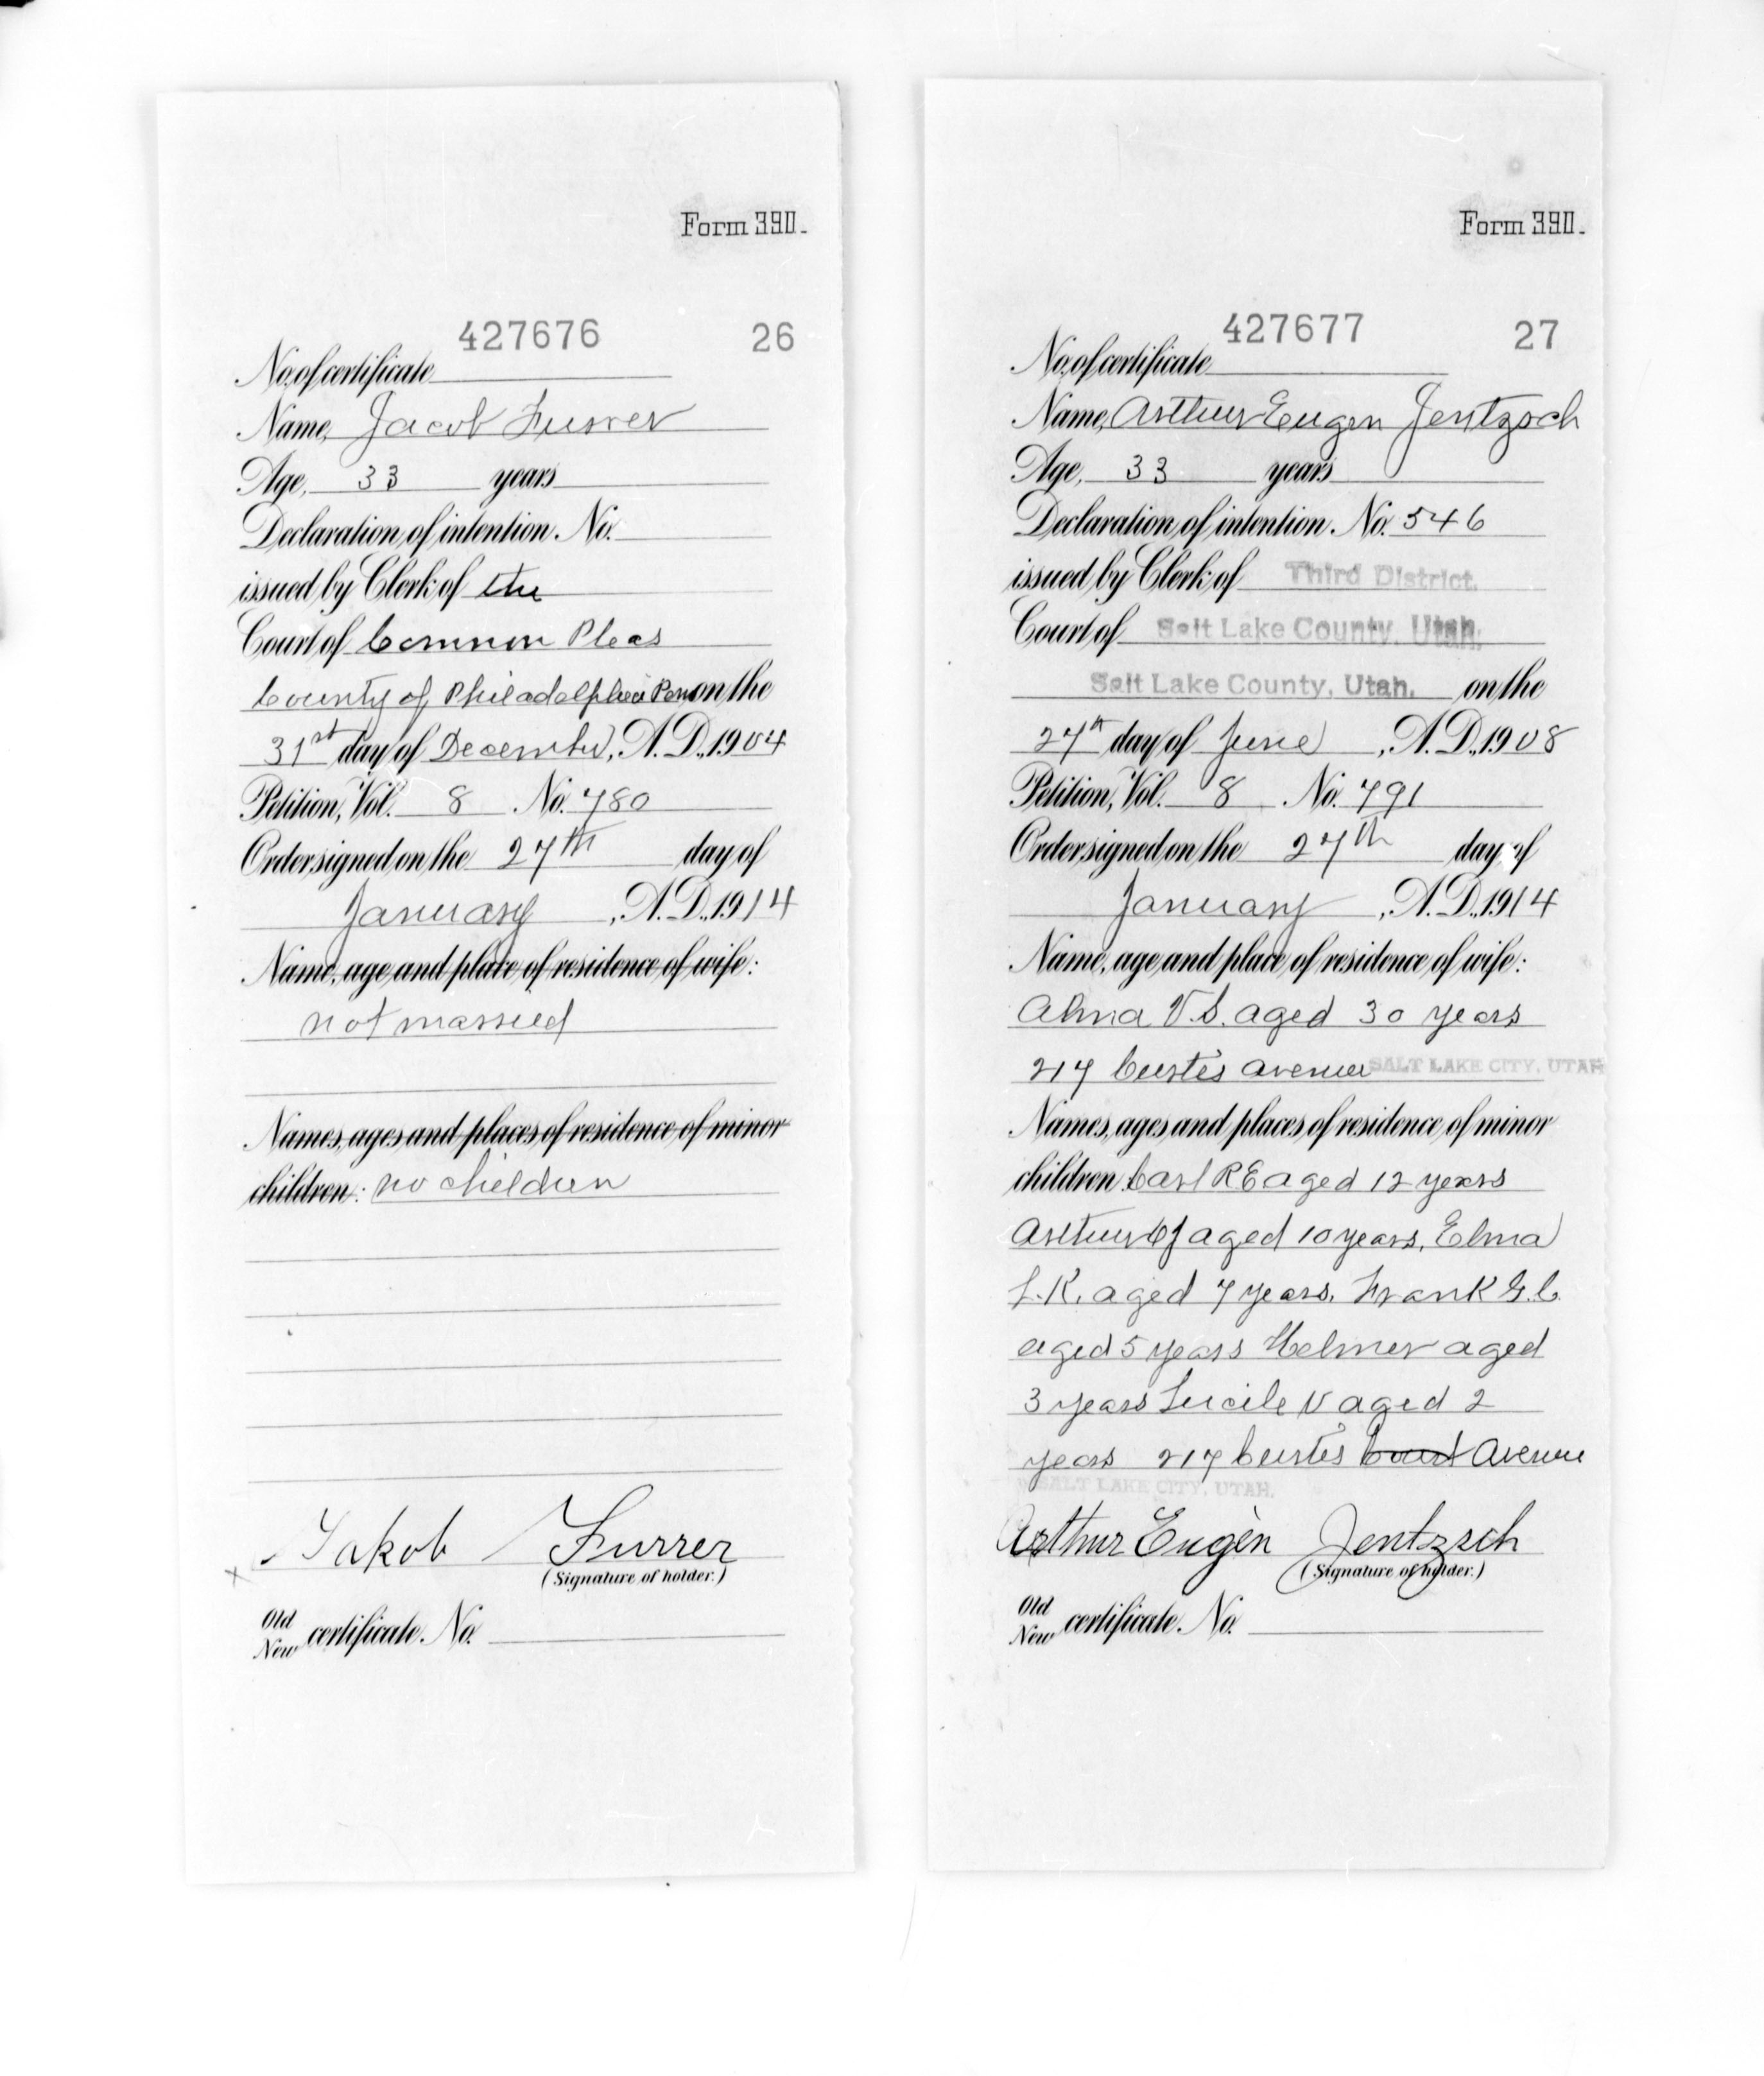 Form 390.
427676 26
No. of certificate
Name, Jacob Furrer
Age, 33 years
Declaration of intention. No.
issued by Clerk of the
Court of Common Pleas
County of Philadelphia Penn on the
31st day of December, A. D., 1904
Petition, Vol. 8 No. 780
Order signed on the 27th day of
January, A. D., 1914
Name, age and place of residence of wife:
not married
Names, ages and places of residence of minor
children: no children
Jakob Furrer
(Signature of holder.)
Old
New certificate. No.
Form 390.
427677 27
No. of certificate
Name, Arthur Eugen Jentzsch
Age, 33 years
Declaration of intention. No. 546
issued by Clerk of Third District.
Court of Salt Lake County, Utah.
Salt Lake County, Utah. on the
27th day of June, A. D., 1908
Petition, Vol. 8 No. 791
Order signed on the 27th day of
January, A. D., 1914
Name, age and place of residence of wife:
Alma V. S. aged 30 years
217 Curtis Avenue SALT LAKE CITY, UTAH
Names, ages and places of residence of minor
children Carl R E aged 12 years
Arthur aged 10 years, Elma
L. K. aged 7 years. Frank G. C.
aged 5 years Helmer aged
3 years Lucile V aged 2
years 217 Curtis Court Avenue
SALT LAKE CITY, UTAH.
Arthur Eugen Jentzsch
(Signature of holder.)
Old
New certificate. No.